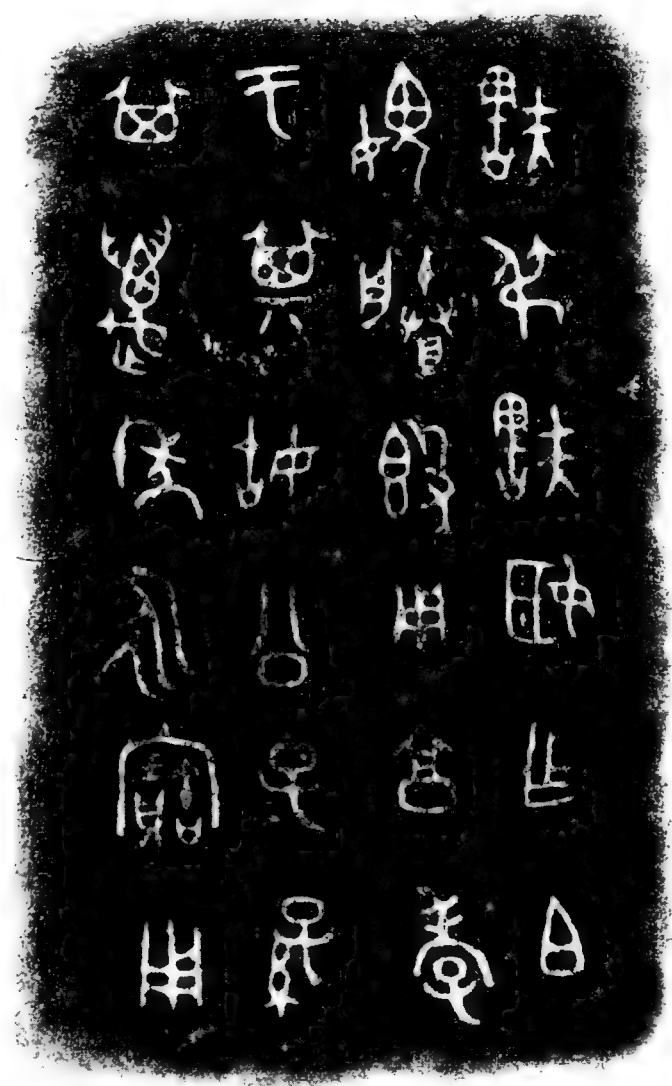 㝬弔㝬姬乍白
媿媵𣪘用享孝
于其姑公子孫
其萬年永寶用